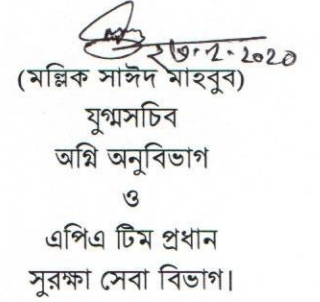 ২৩.২.২০২০
(মল্লিক সাঈদ মাহবুব)
যুগ্মসচিব
অগ্নি অনুবিভাগ
ও
এপিএ টিম প্রধান
সুরক্ষা সেবা বিভাগ।